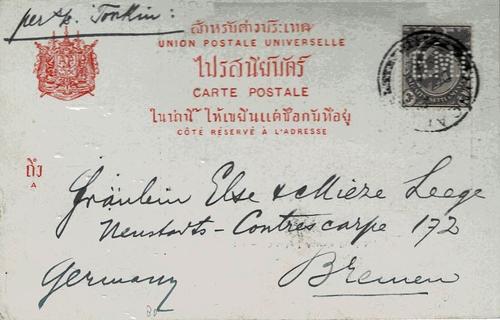 per s/s. Tonkin:
สำหรับต่างประเทศ
UNION POSTALE UNIVERSELLE
ไปรสนียบัตร์
CARTE POSTALE
ในน่านี้ ให้เขียนแต่ชื่อกับที่อยู่
CÔTÉ RÉSERVÉ À L'ADRESSE
ถึง
A
Fräulein Else & Mieze Leege
Neustadts-Contrescarpe 172
Germany
Bremen